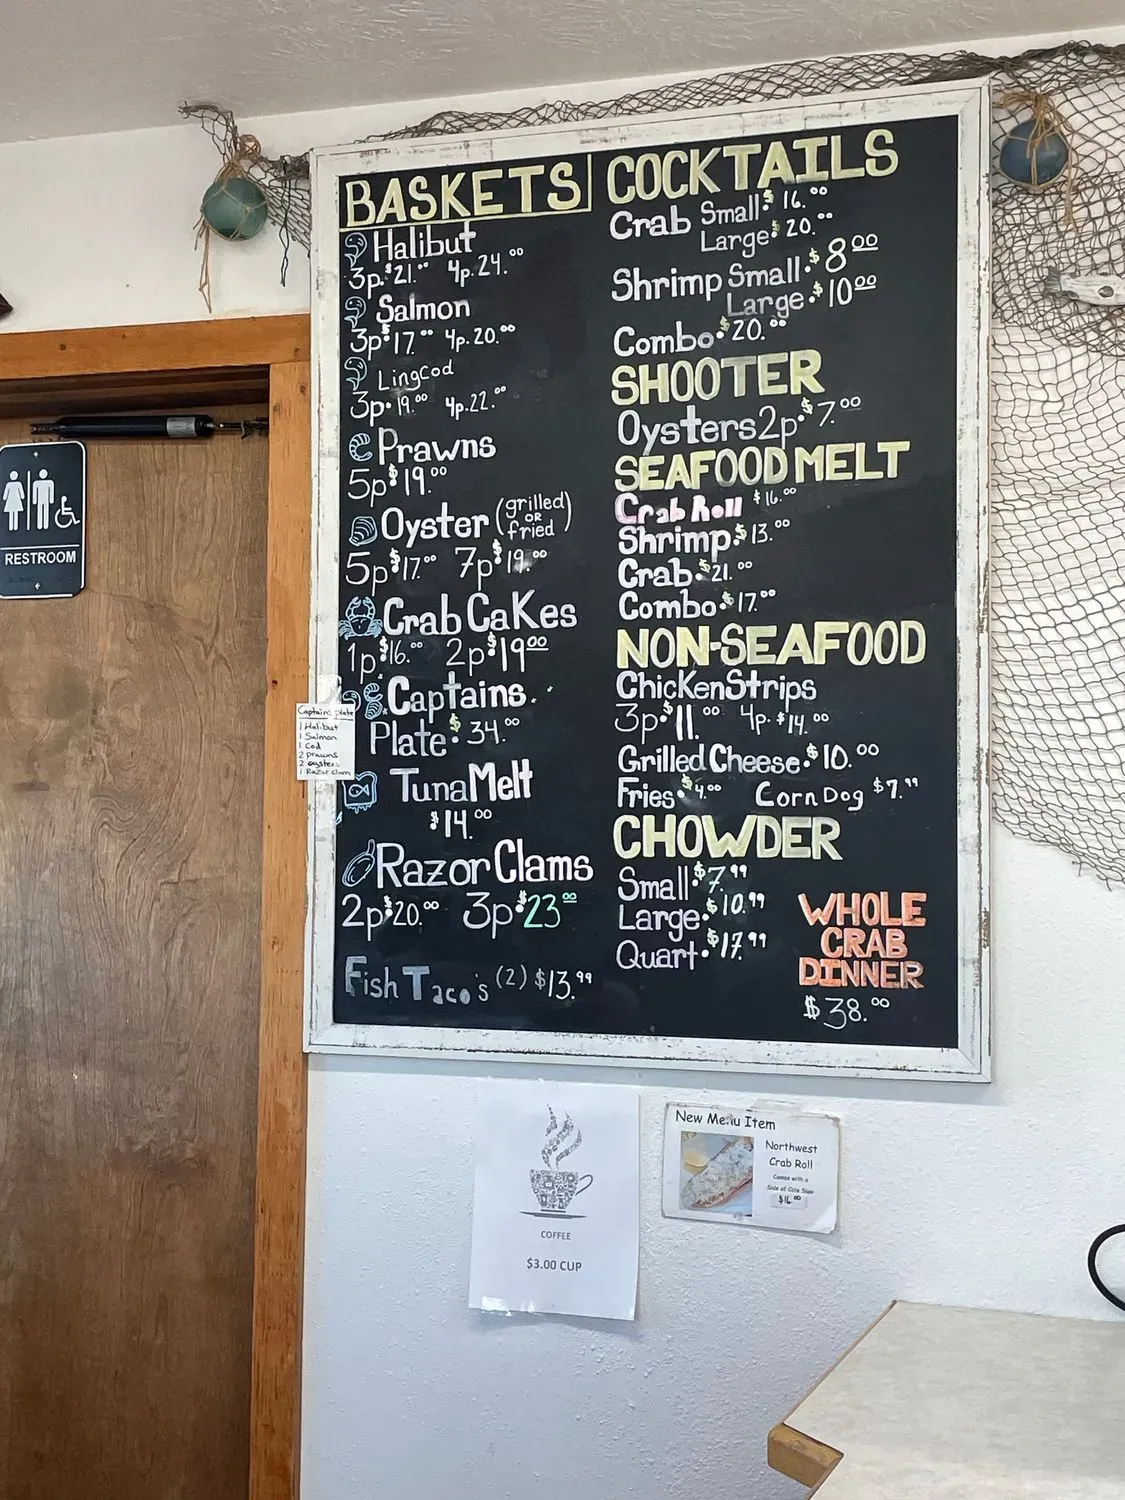 BASKETS
Halibut
3p. $21.00 4p. 24.00
Salmon
3p $17.00 4p. 20.00
Lingcod
3p. 19.00 4p. 22.00
Prawns
5p $19.00
Oyster (grilled OR fried)
5p $17.00 7p $19.00
Crab Cakes
1p $16.00 2p $19.00
Captains
Plate $34.00
Tuna Melt
$14.00
Razor Clams
2p $20.00 3p $23.00
Fish Taco's (2) $13.99
COCKTAILS
Crab Small $16.00
Large $20.00
Shrimp Small $8.00
Large $10.00
Combo $20.00
SHOOTER
Oysters 2p $7.00
SEAFOOD MELT
Crab Roll $16.00
Shrimp $13.00
Crab $21.00
Combo $17.00
NON-SEAFOOD
Chicken Strips
3p $11.00 4p. $14.00
Grilled Cheese $10.00
Fries $4.00 Corn Dog $7.99
CHOWDER
Small $7.99
Large $10.99
Quart $17.99
WHOLE
CRAB
DINNER
$38.00
Captains plate
1 Halibut
1 Salmon
1 Cod
2 prawns
2 oysters
1 Razor clam
RESTROOM
COFFEE
$3.00 CUP
New Menu Item
Northwest
Crab Roll
Comes with a
Side of Cole Slaw
$16.00